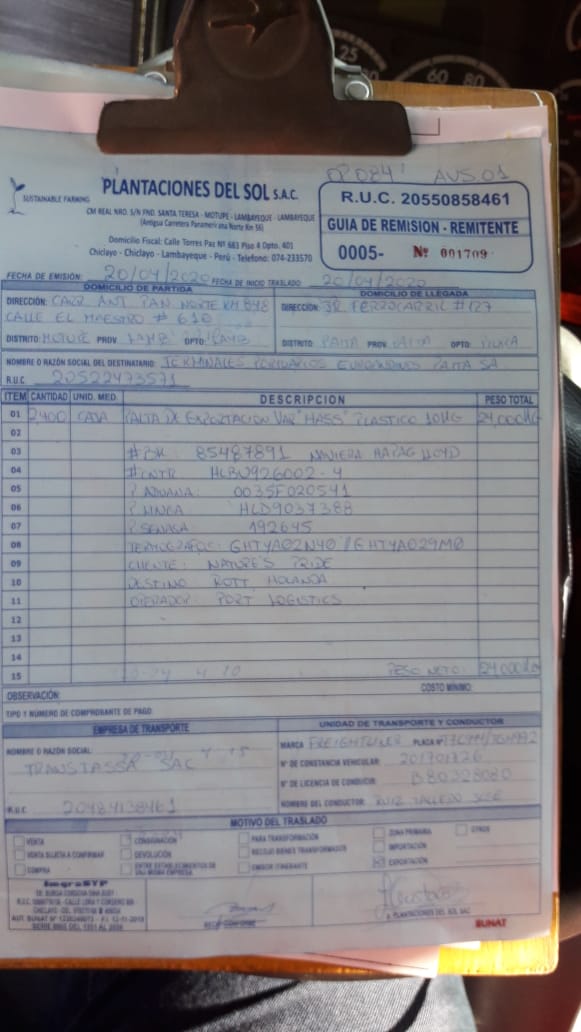 25
60 80
OP 084' AVS.01
SUSTAINABLE FARMING
PLANTACIONES DEL SOL S.A.C.
CM REAL NRO. S/N FND. SANTA TERESA - MOTUPE - LAMBAYEQUE - LAMBAYEQUE
(Antigua Carretera Panamericana Norte Km 56)
Domicilio Fiscal: Calle Torres Paz Nº 683 Piso 4 Dpto. 401
Chiclayo - Chiclayo - Lambayeque - Perú - Telefono: 074-233570
R.U.C. 20550858461
GUIA DE REMISION - REMITENTE
0005- Nº 001709
FECHA DE EMISIÓN: 20/04/2020 FECHA DE INICIO TRASLADO 20/04/2020
DOMICILIO DE PARTIDA DOMICILIO DE LLEGADA
DIRECCIÓN: CARR ANT. PAN. NORTE KM 848 DIRECCIÓN: JR FERROCARRIL # 127
CALLE EL MAESTRO # 610
DISTRITO: MOTUPE PROV LAMB DPTO: LAMB DISTRITO: PAITA PROV PAITA DPTO: PIURA
NOMBRE O RAZÓN SOCIAL DEL DESTINATARIO: TERMINALES PORTUARIOS EUROANDINOS PAITA SA
R.U.C. 20522473571
ITEM CANTIDAD UNID. MED. DESCRIPCION PESO TOTAL
01 2,400 CAJA PALTA DE EXPORTACION VAR "HASS" PLASTICO 10KG 24,000KG
02
03 # BK: 85487891 NAVIERA HAPAG LLOYD
04 # CNTR HLBU926002-4
05 P ADUANA: 0035F020541
06 P LINEA HLD9037388
07 P SENASA: 192645
08 TERMOGRAFOS: GHTYA02N40 / GHTYA029M0
09 CLIENTE: NATURE'S PRIDE
10 DESTINO ROTT HOLANDA
11 OPERADOR: PORT LOGISTICS
12
13
14
15 PESO NETO: 24,000KG
OBSERVACIÓN: COSTO MÍNIMO:
TIPO Y NÚMERO DE COMPROBANTE DE PAGO
EMPRESA DE TRANSPORTE UNIDAD DE TRANSPORTE Y CONDUCTOR
NOMBRE O RAZÓN SOCIAL: MARCA FREIGHTLINER PLACA Nº
TRANSTASSA SAC Nº DE CONSTANCIA VEHICULAR: 201701726
Nº DE LICENCIA DE CONDUCIR B80328080
R.U.C 20484138461 NOMBRE DEL CONDUCTOR: RUIZ TALLEDO JOSE
MOTIVO DEL TRASLADO
VENTA CONSIGNACION PARA TRANSFORMACIÓN ZONA PRIMARIA OTROS
VENTA SUJETA A CONFIRMAR DEVOLUCIÓN RECOJO BIENES TRANSFORMADOS IMPORTACIÓN
COMPRA ENTRE ESTABLECIMIENTOS DE UNA MISMA EMPRESA EMISOR ITINERANTE EXPORTACIÓN
ImgraSTP
RECIBI CONFORME
p. PLANTACIONES DEL SOL SAC
SUNAT